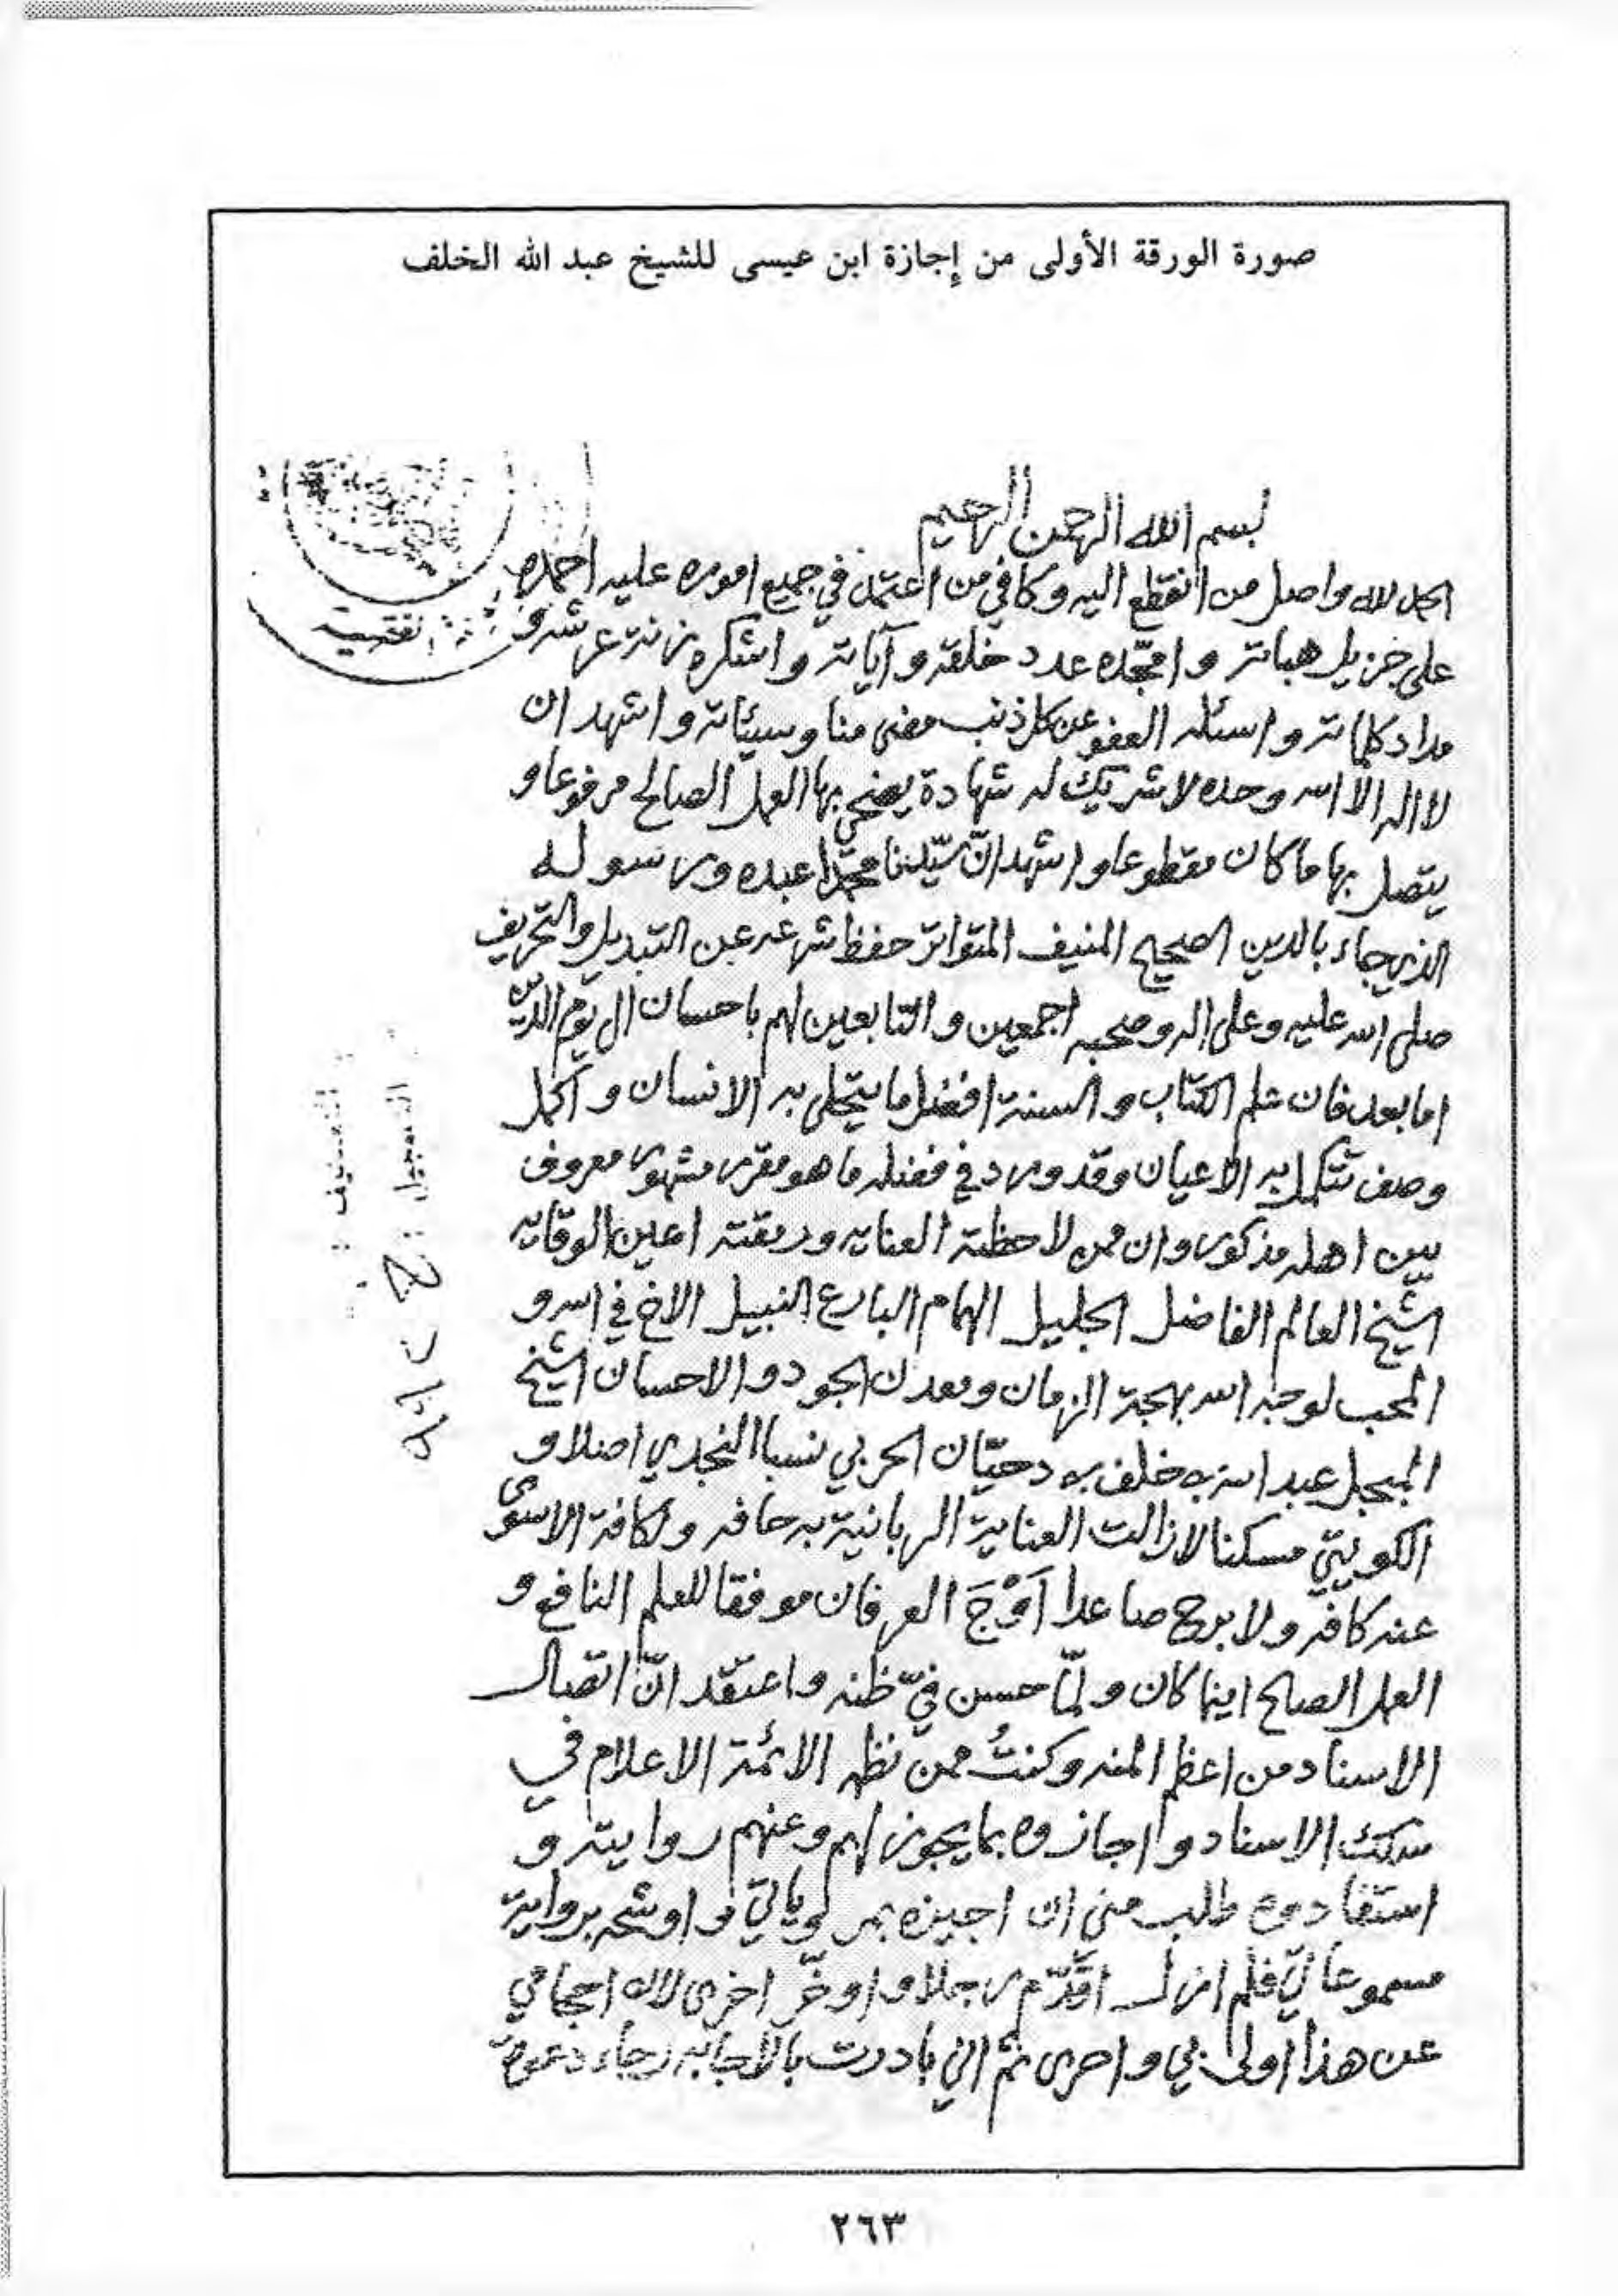 صورة الورقة الأولى من إجازة ابن عيسى للشيخ عبد الله الخلف
بسم الله الرحمن الرحيم
الحمد لله واصل من انقطع اليه وكافي من اعتمد في جميع اموره عليه احمده
على جزيل هباته وامجّده عدد خلقه وآياته واشكره زنة عرشه و
مداد كلماته واسئله العفو عن كل ذنب مضى منا وسيئاته واشهد ان
لا اله الا الله وحده لا شريك له شهادة يضحي بها العمل الصالح مرفوعا و
يتصل بها ما كان مقطوعا واشهد انّ سيّدنا محمّدا عبده ورسوله
الذي جاء بالدين الصحيح المنيف المتواتر حفظ شرعه عن التبديل والتحريف
صلى الله عليه وعلى اله وصحبه اجمعين والتابعين لهم باحسان الى يوم الدّين
اما بعد فان علم الكتاب والسنة افضل ما يتحلى به الانسان واكمل
وصف تتكمل به الاعيان وقد ورد في فضله ما هو مقرر مشهور معروف
بين اهله مذكور وان ممن لاحظته العنايه ورمقته اعين الوقايه
الشيخ العالم الفاضل الجليل الهمام البارع النبيل الاخ في الله و
المحب لوجه الله بهجة الزمان ومعدن الجود والاحسان الشيخ
المبجل عبد الله بن خلف بن دحيّان الحربي نسبا النجدي اصلا و
الكويتيّ مسكنا لا زالت العناية الربانية به حافه ولكافة الاسوى
عنه كافه ولا برح صاعدا اَوْجَ العرفان موفقا للعلم النافع و
العمل الصالح اينما كان ولمّا حسن فيّ ظنه واعتقد انّ اتصال
الاسناد من اعظم المنه وكنتُ ممن نظمه الائمة الاعلام في
سلك الاسناد واجازوه بما يجوز لهم وعنهم روايته و
استفادوه طلب مني ان اجيزه بمروياتي واوشحه برواية
مسموعاتيّ فلم ازل اقدّم رجلا واوخّر اخرى لان احجامي
عن هذا اولى بي واحرى ثمّ اني بادرت بالاجابه رجاء دعوة
٢٦٣